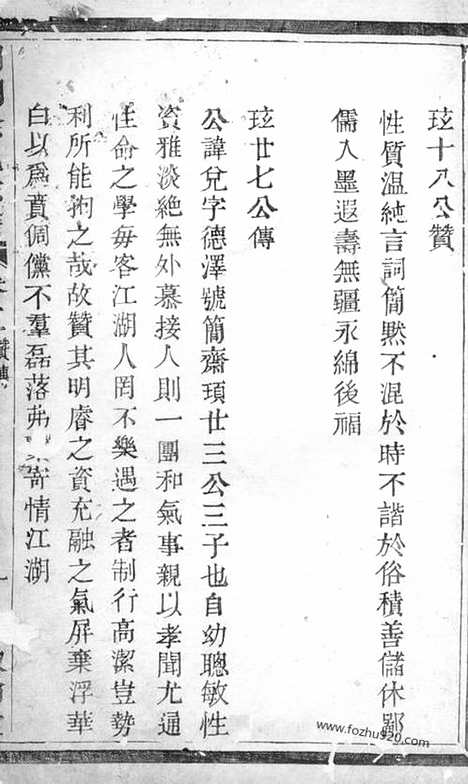 玹十八公贊
性質溫純言詞簡默不混於時不諧於俗積善儲休鄒
儒入墨遐壽無疆永綿後福
玹廿七公傳
公諱兌字德澤號簡齋頊廿三公三子也自幼聰敏性
資雅淡絶無外慕接人則一團和氣事親以孝聞尤通
性命之學每客江湖人罔不樂遇之者制行高潔豈勢
利所能拘之哉故贊其明睿之資充融之氣屏棄浮華
白以爲賁倜儻不羣磊落弗寄情江湖
贊傳
www.fozhu920.com